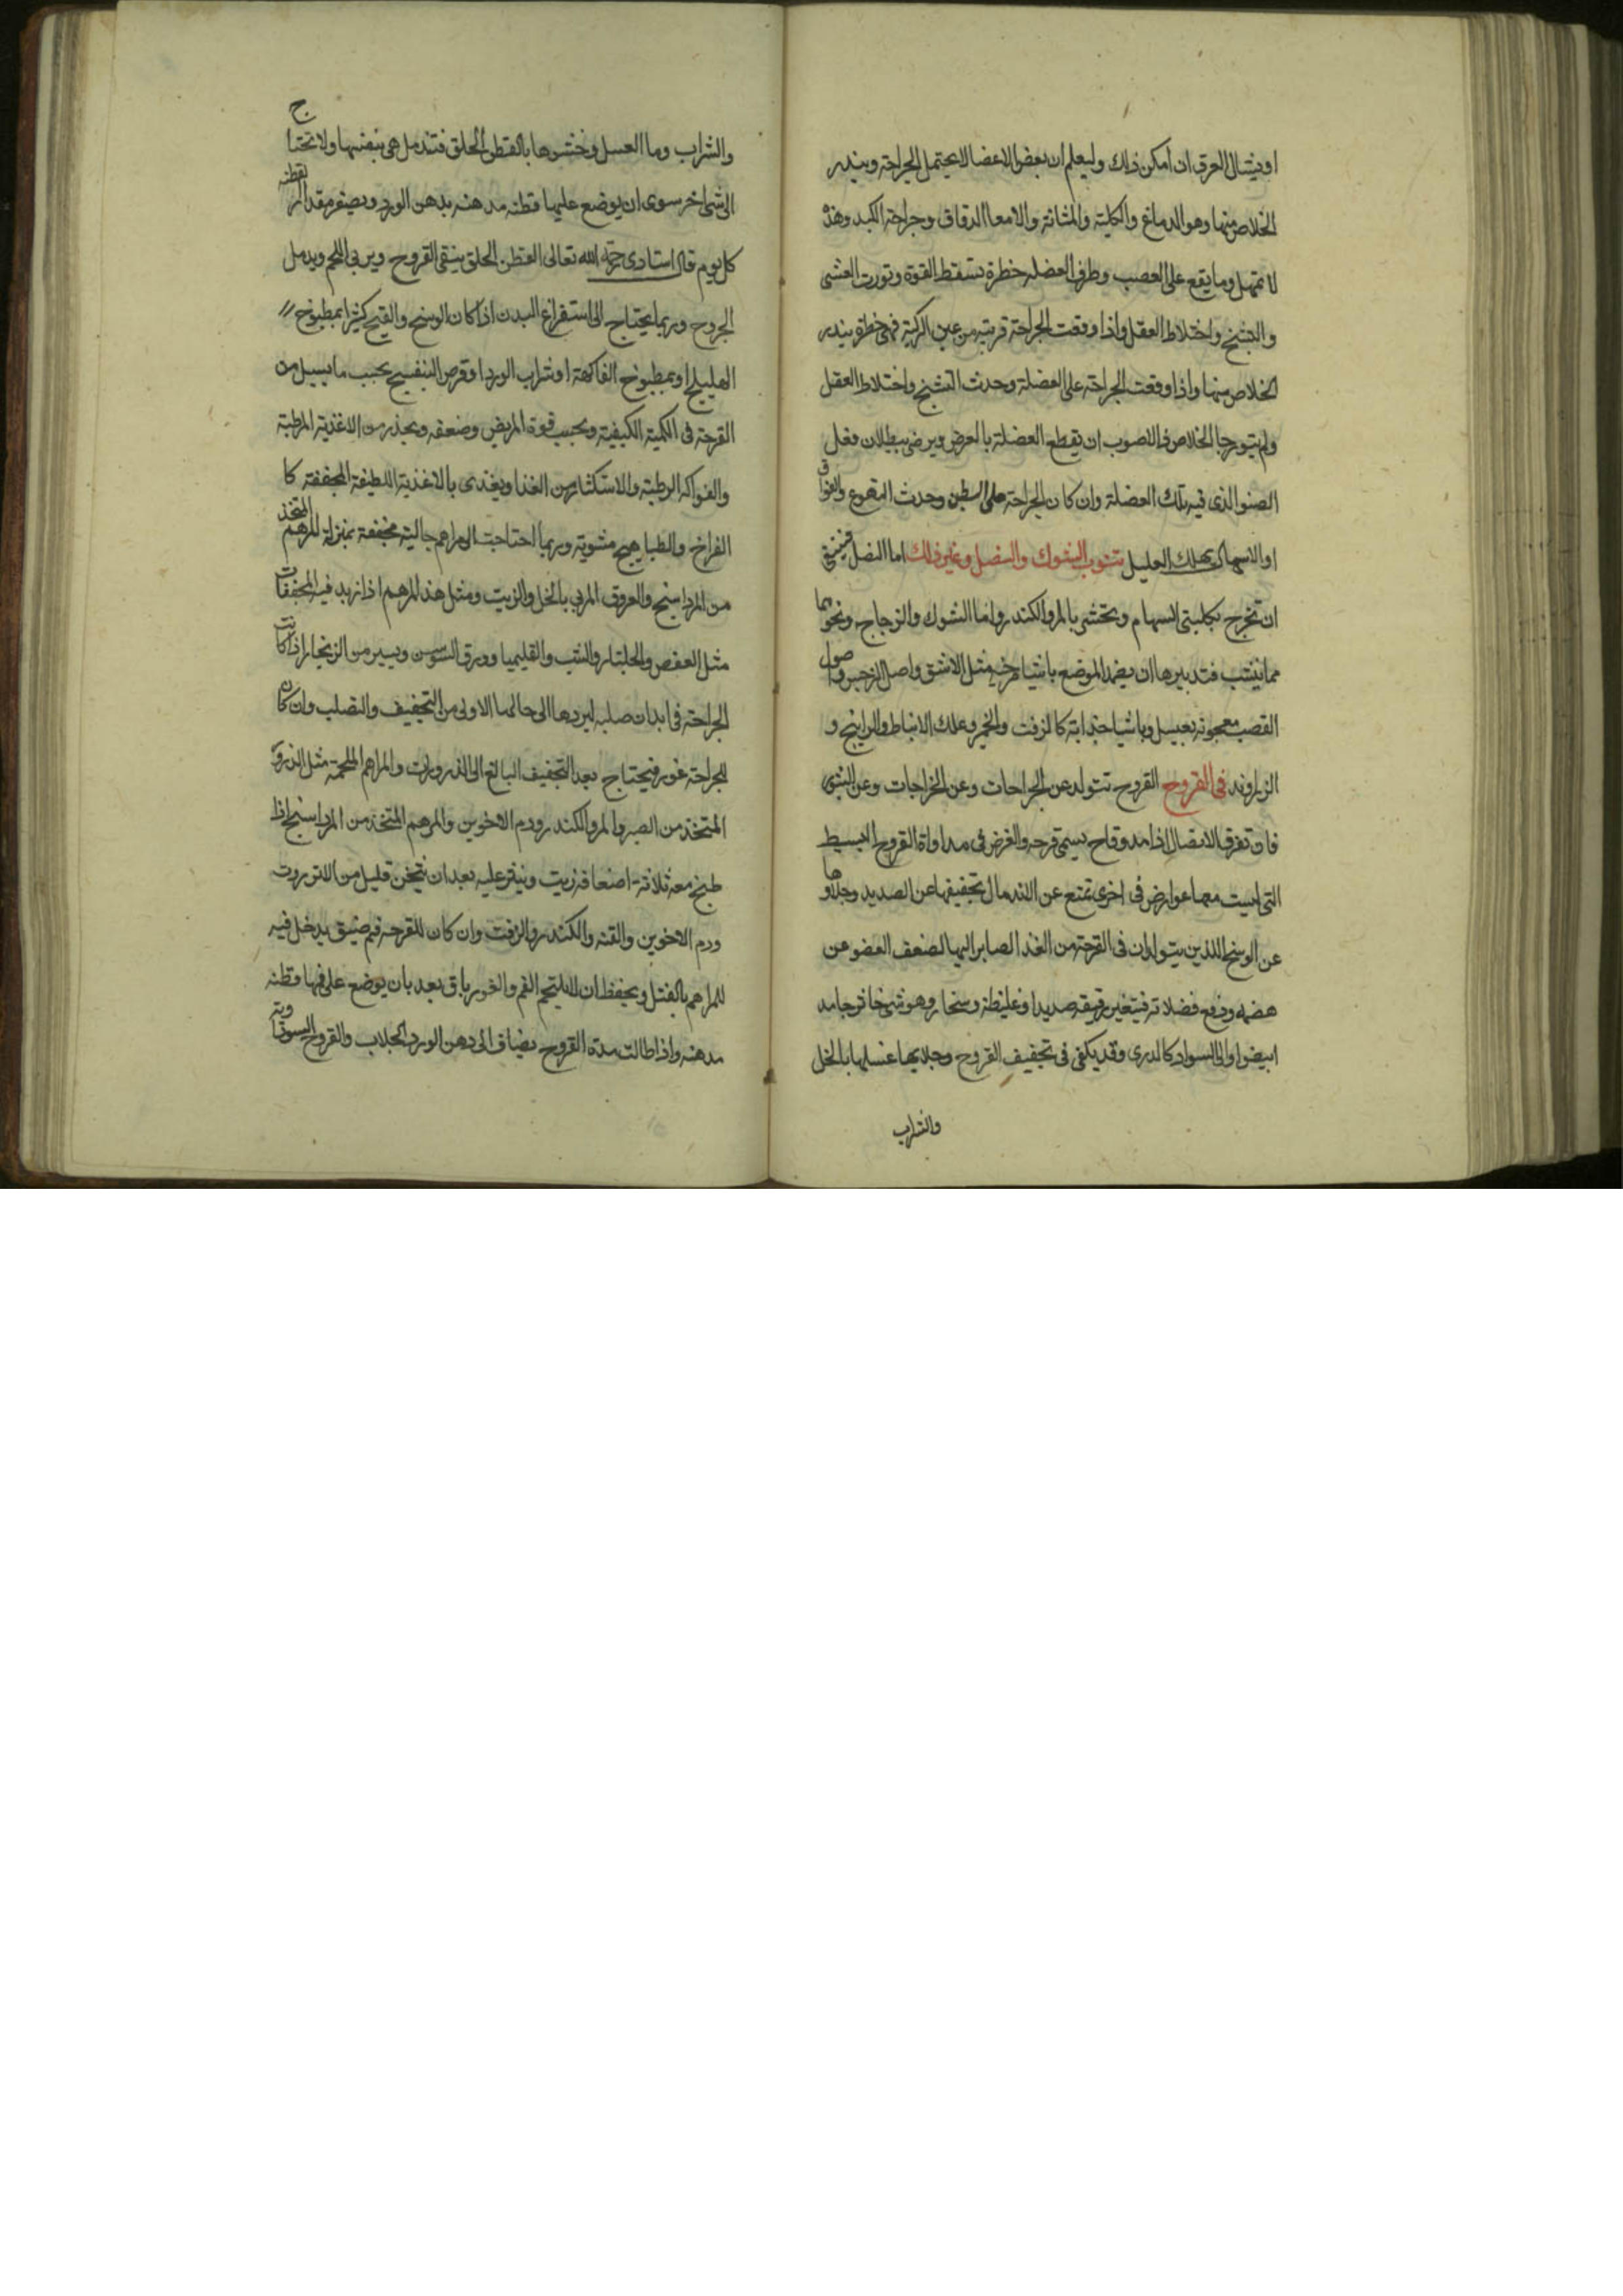 او ينشال العرق ان امكن ذلك وليعلم ان بعض الاعضا لا يحتمل الجراحة ويندر
الخلاص منها وهو الدماغ والكلية والمثانة والامعا الدقاق وجراحة الكبد وهذه
لا تمهل وما يقع على العصب وطرف العضله خطرة تسقط القوة وتورث الغشى
والتشنج واختلاط العقل واذا وقعت الجراحة قريبه من عين الركبة فهى خطرة يندر
الخلاص منها واذا وقعت الجراحة على العضلة وحدث التشنج واختلاط العقل
ولم يتو رجا الخلاص فالاصوب ان تقطع العضلة بالعرض ويرضى ببطلان فعل
العضو الذى فيه تلك العضلة وان كان الجراحة على البطن وحدث التهوع والفواق
او الاسهال يهلك العليل نشوب الشوك والنصل وغير ذلك اما النصل فينبغى
ان تخرج بكلبتى السهام وتحتشى بالمر والكندر واما الشوك والزجاج ونحوهما
مما ينشب فتدبيرها ان يضمد الموضع باشيا مرخيه مثل الاشق واصل النرجس واصول
القصب معجونه بعسل وباشيا جذابة كالزفت والخمير وعلك الانباط والراتينج و
الزراوند فى القروح القروح تتولد عن الجراحات وعن الخراجات وعن البثور
فان تفرق الاتصال اذا مد وقاح يسمى قرحه والغرض فى مداواة القروح البسيط
التى ليست معها عوارض فى اخرى تمنع عن الاندمال تجفيفها عن الصديد وجلاوها
عن الوسخ اللذين يتولدان فى القرحة من الغذا الصاير اليها لضعف العضو عن
هضمه ودفع فضلاته فيتغير رقيقه صديدا وغليظه وسخا وهو شى خاثر جامد
ابيض او الى السواد كالدرى وقد يكفى فى تجفيف القروح وجلايها غسلها بالخل
والشراب
ج
والشراب وما العسل وحشوها بالقطن الخلق فتندمل هى بنفسها ولا تحتا
الى شى اخر سوى ان يوضع عليها قطنه مدهنه بدهن الورد ويصغر مقدار القطنه
كل يوم قال استادى رحمه الله تعالى القطن الخلق ينقى القروح ويربى اللحم ويدمل
الجروح وربما يحتاج الى استفراغ البدن اذا كان الوسخ والقيح كثيرا بمطبوخ
الهليلج او بمطبوخ الفاكهة او شراب الورد او قرص البنفسج بحسب ما يسيل من
القرحة فى الكمية الكيفية وبحسب قوة المريض وضعفه ويحذر من الاغذية المرطبة
والفواكه الرطبة والاستكثار من الغذا ويغذى بالاغذية اللطيفة المجففة كا
الفراخ والطباهيج مشوية وربما احتاجت الى مراهم جالية مجففة بمنزلة المرهم المتخذ
من المرداسنج والعروق المربى بالخل والزيت ومثل هذا المرهم اذا زيد فيه المجففات
مثل العفص والجلنار والشب والقليميا وورق السوسن ويسير من الزنجار اذا كانت
الجراحة فى ابدان صلبه ليردها الى حالها الاولى من التجفيف والتصلب وان كان
للجراحة غور فيحتاج بعد التجفيف البالغ الى الذرورات والمراهم الملحمة مثل الذرور
المتخذ من الصبر والمر والكندر ودم الاخوين والمرهم المتخذ من المرداسنج اذا
طبخ معه ثلاثة اضعافه زيت وينثر عليه بعد ان يتخن قليل من الانزروت
ودم الاخوين والقنه والكندر والزفت وان كان للقرحه فم ضيق يدخل فيه
المراهم بالفتل ويحفظ ان لا يلتحم الفم والغور باق بعد بان يوضع على فمها قطنه
مدهنه واذا طالت مدة القروح يضاف الى دهن الورد الجلاب والقروح